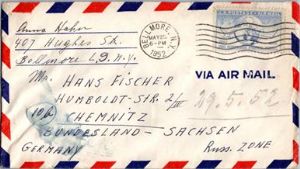 Anna Hahn
407 Hughes St.
Bellmore L.I. N.Y.
BELLMORE, N.Y.
6-PM
1952
U.S. POSTAGE AIR MAIL
VIA AIR MAIL
Mr. HANS FISCHER
HUMBOLDT-STR. 2/III
29.5.52
(10b) CHEMNITZ
BUNDESLAND-SACHSEN
GERMANY Russ. ZONE